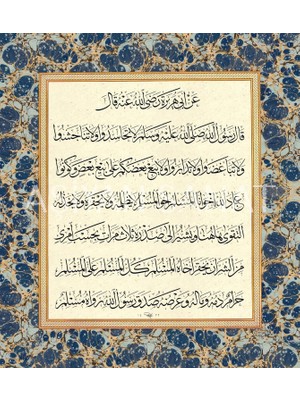 عَنْ اَبِى هُرَيْرَةَ رَضِىَ اللهُ عَنْهُ قَالَ
قَالَ رَسُولُ اللهِ صَلَّى اللهُ عَلَيْهِ وَسَلَّمَ لَا تَحَاسَدُوا وَلَا تَنَاجَشُوا
وَلَا تَبَاغَضُوا وَلَا تَدَابَرُوا وَلَا يَبِعْ بَعْضُكُمْ عَلَى بَيْعِ بَعْضٍ وَكُونُوا
عِبَادَ اللهِ اِخْوَانًا اَلْمُسْلِمُ اَخُو الْمُسْلِمِ لَا يَظْلِمُهُ وَلَا يَحْقِرُهُ وَلَا يَخْذُلُهُ
اَلتَّقْوَى هَاهُنَا وَيُشِيرُ اِلَى صَدْرِهِ ثَلَاثَ مَرَّاتٍ بِحَسْبِ امْرِئٍ
مِنَ الشَّرِّ اَنْ يَحْقِرَ اَخَاهُ الْمُسْلِمَ كُلُّ الْمُسْلِمِ عَلَى الْمُسْلِمِ
حَرَامٌ دَمُهُ وَمَالُهُ وَعِرْضُهُ صَدَقَ رَسُولُ اللهِ رَوَاهُ مُسْلِم